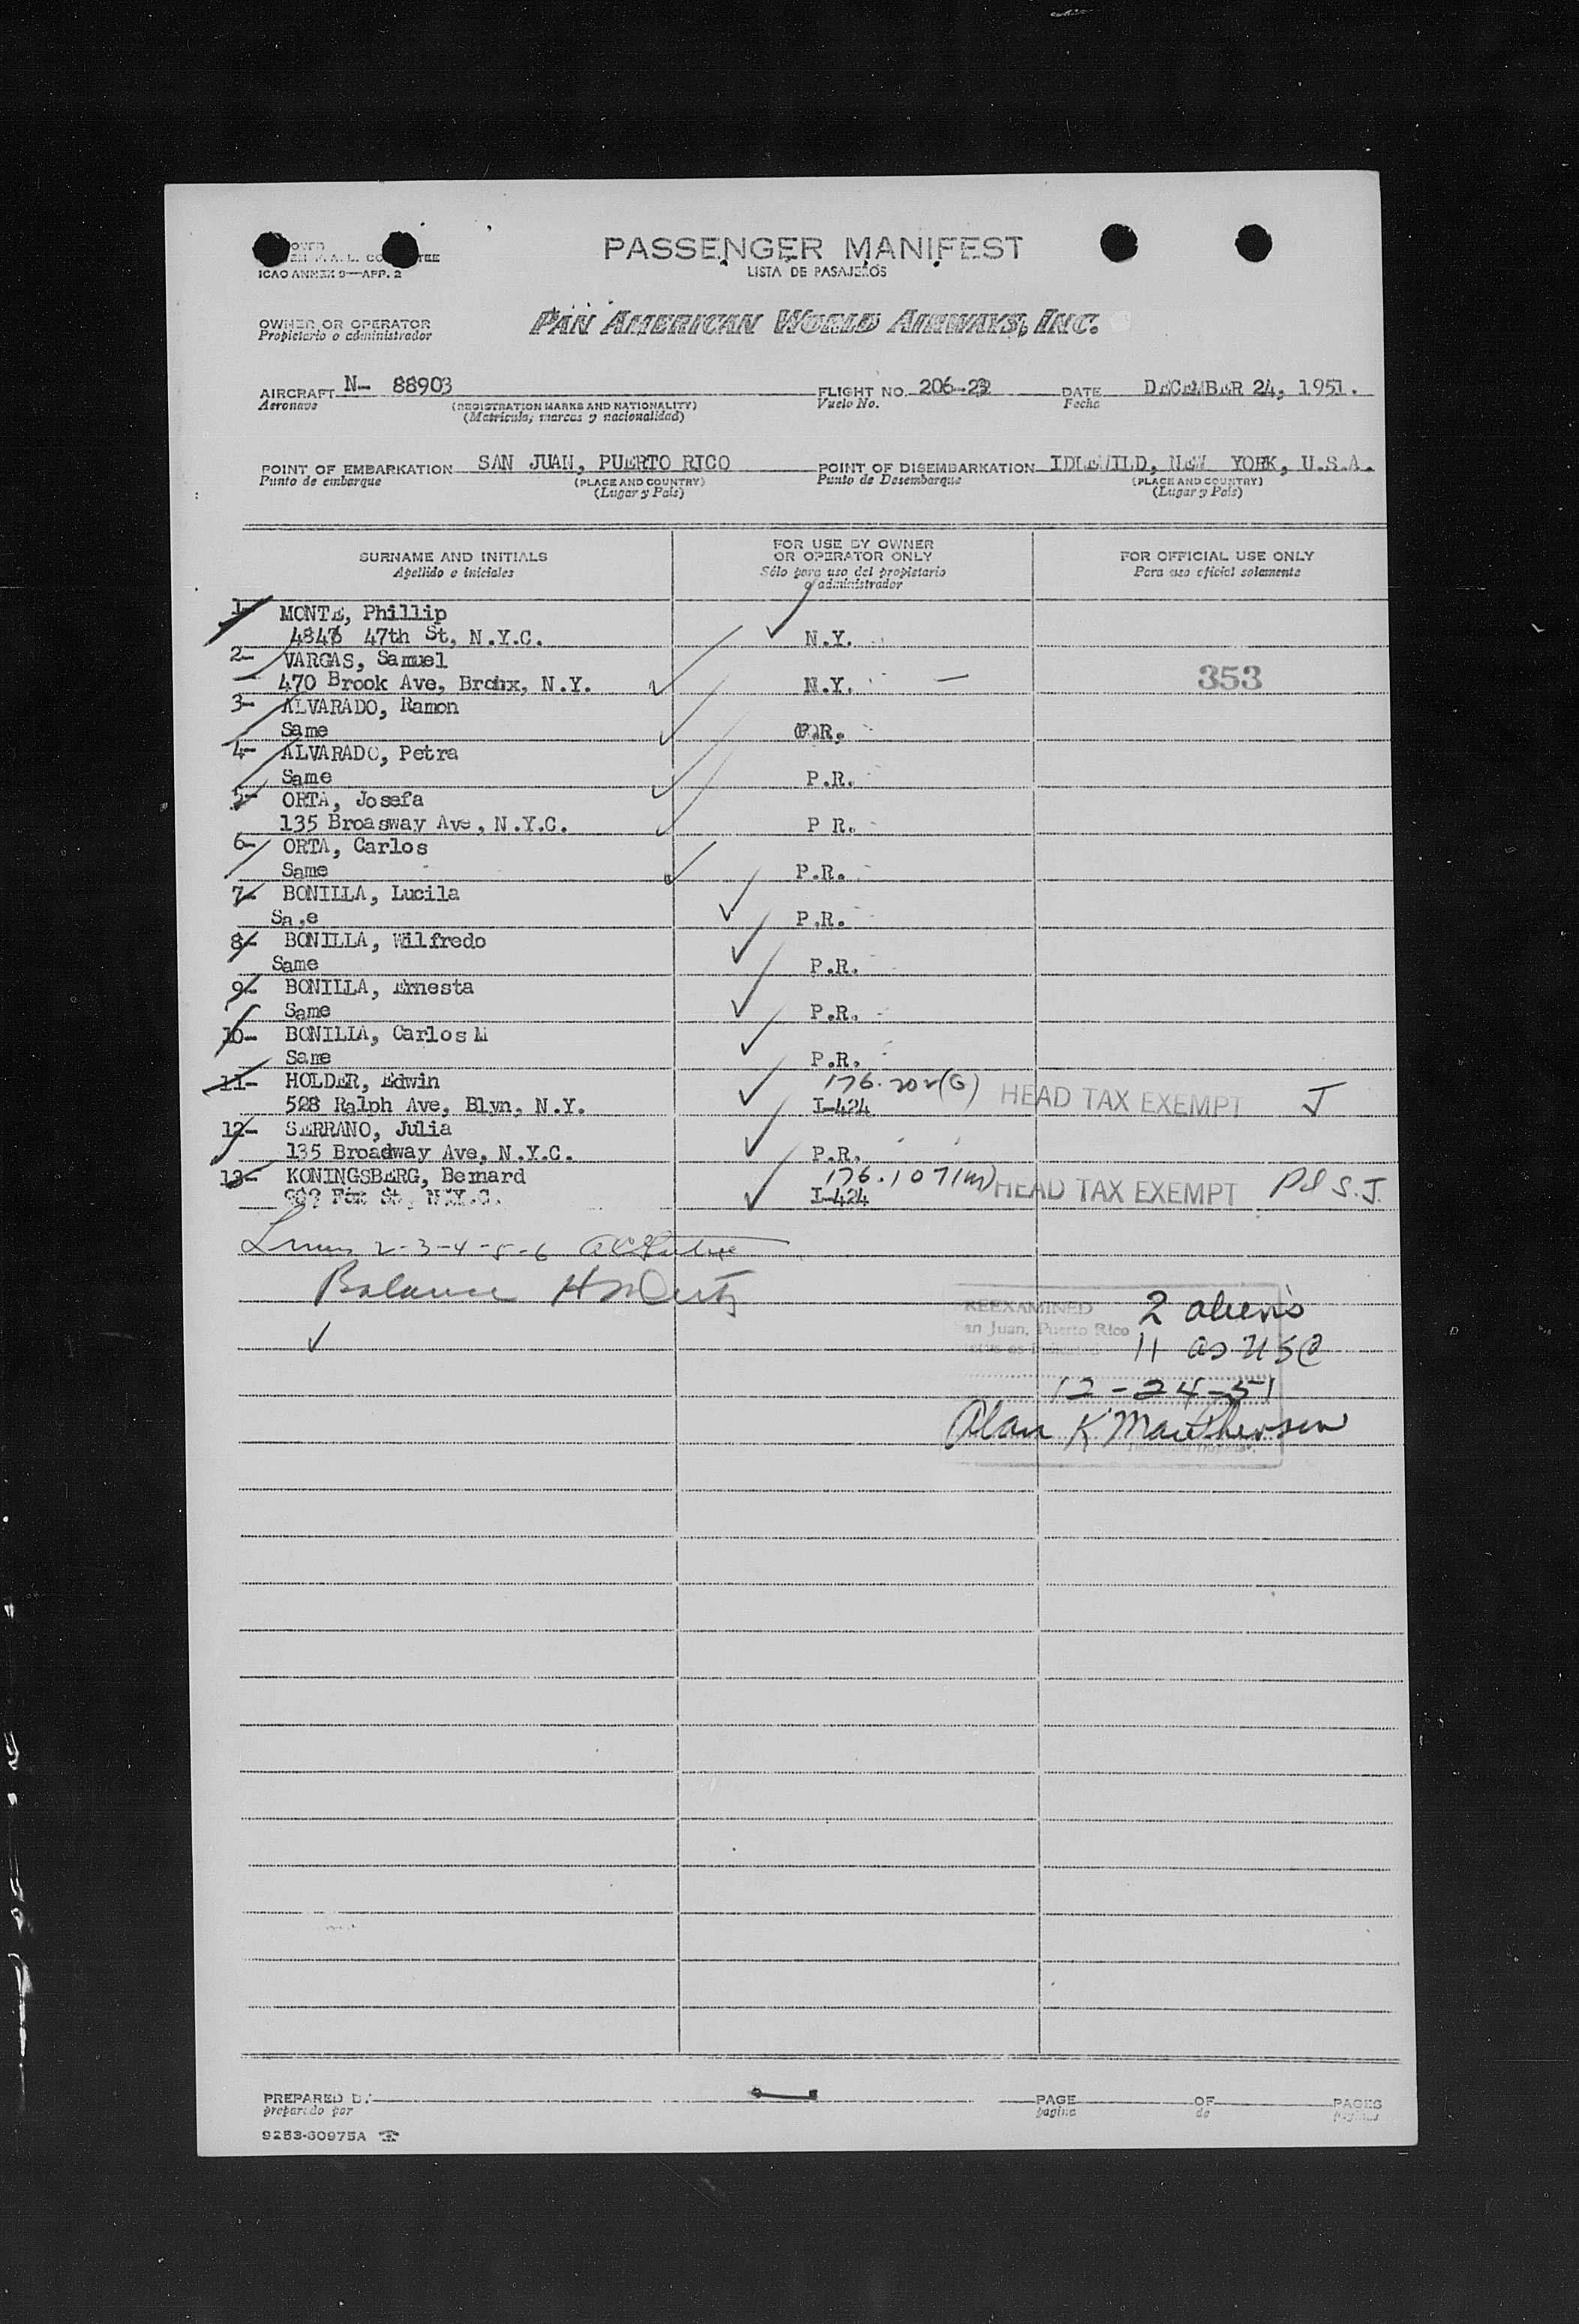 PASSENGER MANIFEST
LISTA DE PASAJEROS
ICAO ANNEX 9—APP. 2
OWNER OR OPERATOR
Propietario o administrador
PAN AMERICAN WORLD AIRWAYS, INC.
AIRCRAFT N- 88903 FLIGHT NO. 206- DATE DECEMBER 24, 1951.
Aeronave (REGISTRATION MARKS AND NATIONALITY) Vuelo No. Fecha
(Matricula, marcas y nacionalidad)
POINT OF EMBARKATION SAN JUAN, PUERTO RICO POINT OF DISEMBARKATION IDLEWILD, NEW YORK, U.S.A.
Punto de embarque (PLACE AND COUNTRY) Punto de Desembarque (PLACE AND COUNTRY)
(Lugar y País) (Lugar y País)
SURNAME AND INITIALS FOR USE BY OWNER OR OPERATOR ONLY FOR OFFICIAL USE ONLY
Apellido e iniciales Sólo para uso del propietario o administrador Para uso oficial solamente
1- MONTE, Phillip
47th St, N.Y.C. N.Y.
2- VARGAS, Samuel
470 Brook Ave, Bronx, N.Y. N.Y. — 353
3- ALVARADO, Ramon
Same P.R.
4- ALVARADO, Petra
Same P.R.
5- ORTA, Josefa
135 Broasway Ave, N.Y.C. P R.
6- ORTA, Carlos
Same P.R.
7- BONILLA, Lucila
Sa,e P.R.
8- BONILLA, Wilfredo
Same P.R.
9- BONILLA, Ernesta
Same P.R.
10- BONILLA, Carlos M
Same P.R.
11- HOLDER, Edwin 176.202(G)
528 Ralph Ave, Blyn, N.Y. I-424 HEAD TAX EXEMPT J
12- SERRANO, Julia
135 Broadway Ave, N.Y.C. P.R.
13- KONINGSBERG, Bernard 176.107(m)
Fox St, N.Y.C. I-424 HEAD TAX EXEMPT Pd S.J.
Lines 2-3-4-5-6
Balance
REEXAMINED 2 aliens
San Juan, Puerto Rico 11 as USC
12-24-51
Alan K
PREPARED BY PAGE OF PAGES
preparado por pagina de paginas
9253-60975A